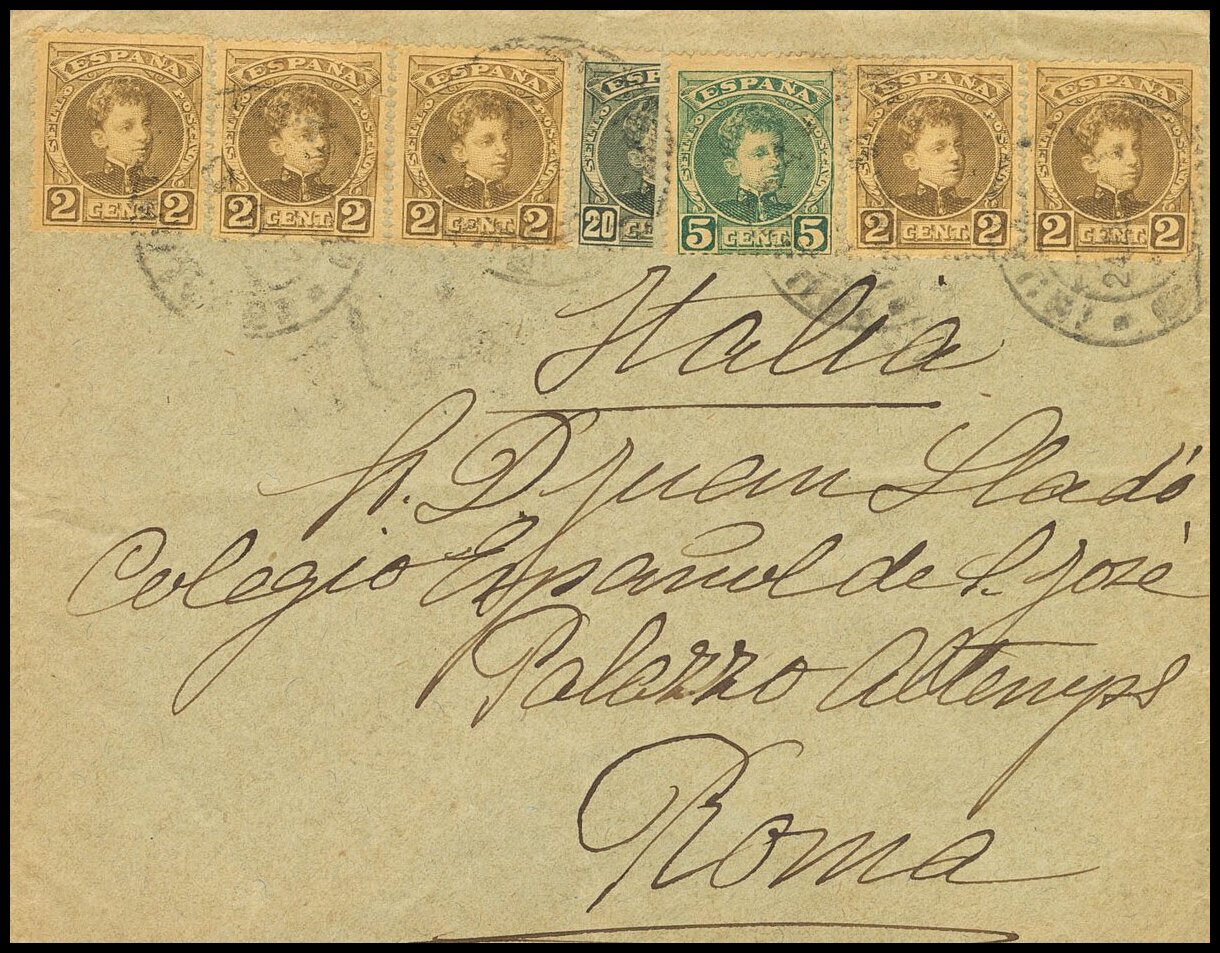 ESPAÑA ESPAÑA ESPAÑA ESP ESPAÑA ESPAÑA ESPAÑA
SELLO POSTAL SELLO POSTAL SELLO POSTAL SELLO SELLO POSTAL SELLO POSTAL SELLO POSTAL
2 CENT. 2 2 CENT. 2 2 CENT. 2 20 CE 5 CENT. 5 2 CENT. 2 2 CENT. 2
24
Italia
Sr. D. Juan Lladó
Colegio Español de S. José
Palazzo Altemps
Roma